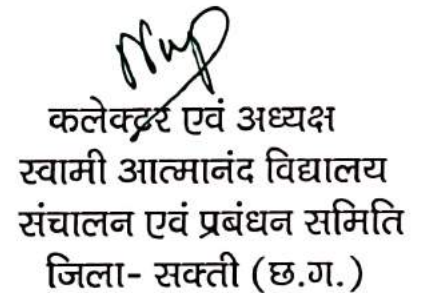 कलेक्टर एवं अध्यक्ष
स्वामी आत्मानंद विद्यालय
संचालन एवं प्रबंधन समिति
जिला- सक्ती (छ.ग.)